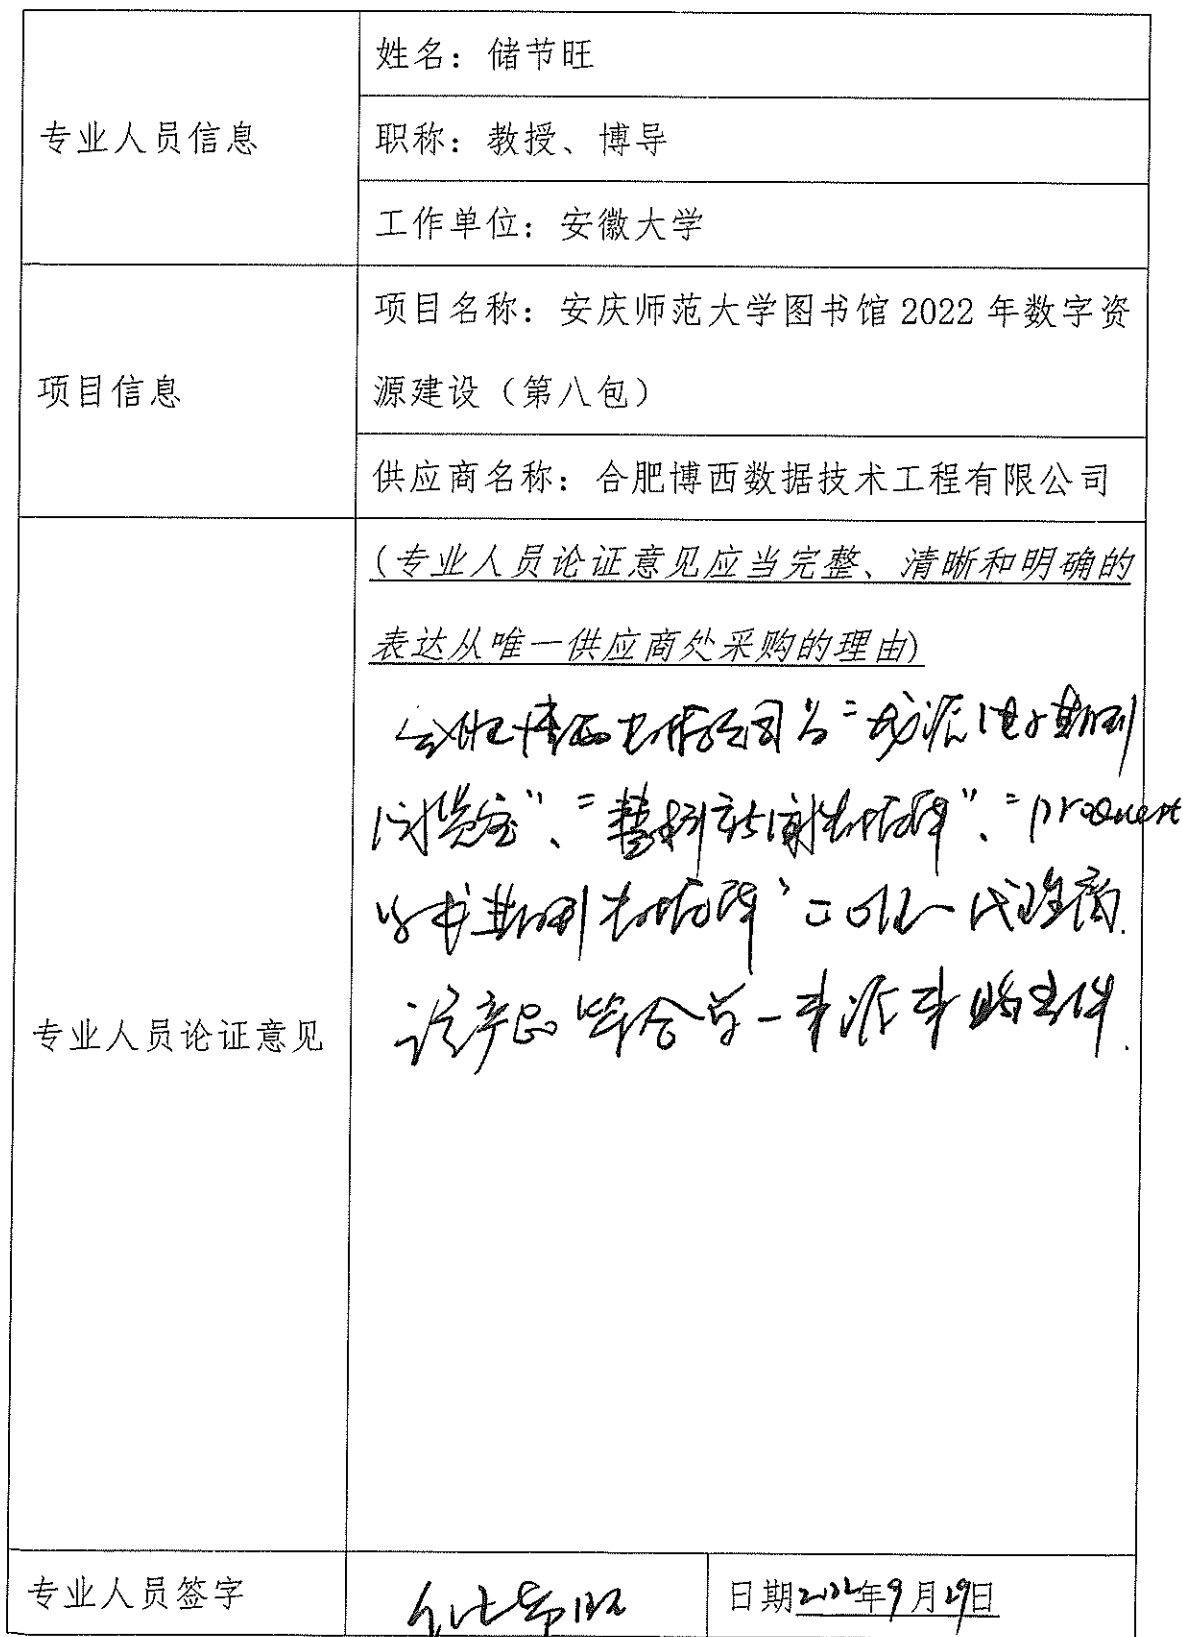 专业人员信息
姓名：储节旺
职称：教授、博导
工作单位：安徽大学
项目信息
项目名称：安庆师范大学图书馆 2022 年数字资
源建设（第八包）
供应商名称：合肥博西数据技术工程有限公司
专业人员论证意见
(专业人员论证意见应当完整、清晰和明确的
表达从唯一供应商处采购的理由)
合肥博西数据公司为“龙源电子期刊
阅览室”、“慧科新闻数据库”、“proquest
学书期刊数据库”的唯一代理商.
该产品符合单一来源采购条件.
专业人员签字
储节旺
日期2022年9月29日